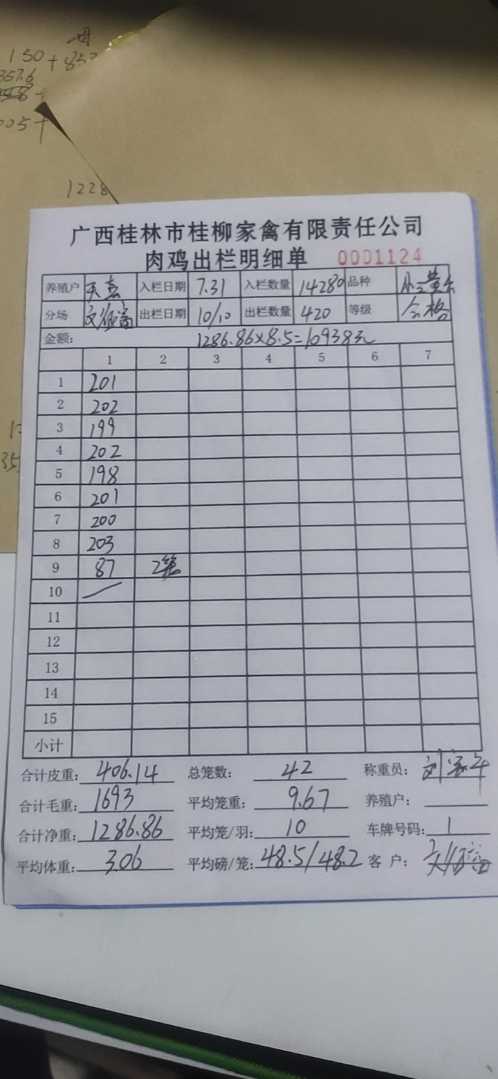 150 + 857
357.6
005 +
1228
广西桂林市桂柳家禽有限责任公司
肉鸡出栏明细单 0001124
养殖户 入栏日期 7.31 入栏数量 14280 品种
分场 出栏日期 10/10 出栏数量 420 等级 合格
金额: 1286.86×8.5=10938元
1 2 3 4 5 6 7
1 201
2 202
3 199
4 202
5 198
6 201
7 200
8 203
9 87 2笼
10
11
12
13
14
15
小计
合计皮重: 406.14 总笼数: 42 称重员:
合计毛重: 1693 平均笼重: 9.67 养殖户:
合计净重: 1286.86 平均笼/羽: 10 车牌号码: 1
平均体重: 3.06 平均磅/笼: 48.5/48.2 客 户: